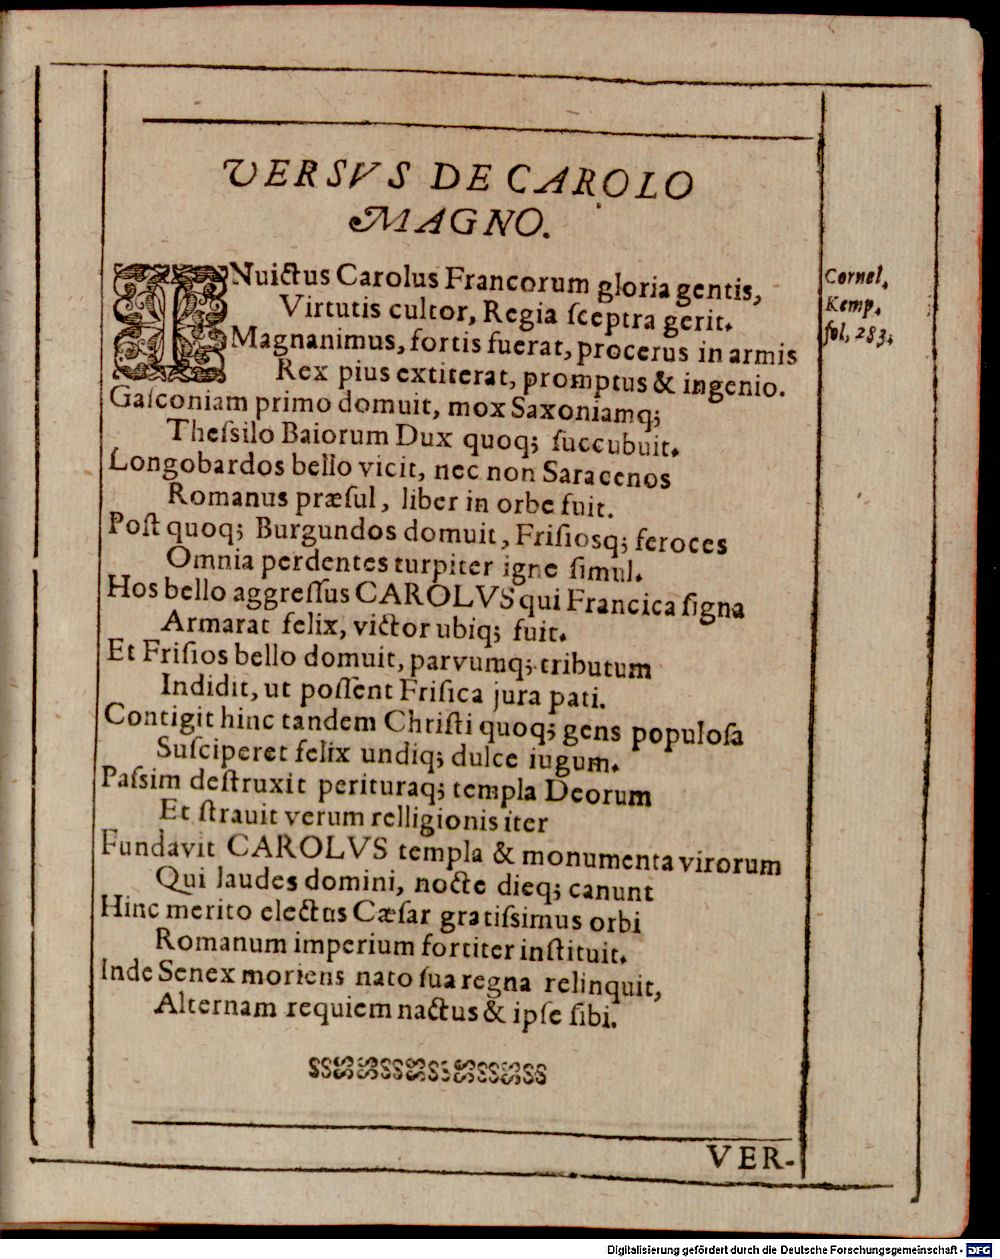 VERSVS DE CAROLO
MAGNO.
INuictus Carolus Francorum gloria gentis,
Virtutis cultor, Regia ſceptra gerit.
Magnanimus, fortis fuerat, procerus in armis
Rex pius extiterat, promptus & ingenio.
Gaſconiam primo domuit, mox Saxoniamq;
Theſsilo Baiorum Dux quoq; ſuccubuit.
Longobardos bello vicit, nec non Saracenos
Romanus præſul, liber in orbe fuit.
Poſt quoq; Burgundos domuit, Friſiosq; feroces
Omnia perdentes turpiter igne ſimul.
Hos bello aggreſſus CAROLVS qui Francica ſigna
Armarat felix, victor ubiq; fuit.
Et Friſios bello domuit, parvumq; tributum
Indidit, ut poſſent Friſica jura pati.
Contigit hinc tandem Chriſti quoq; gens populoſa
Suſciperet felix undiq; dulce iugum.
Paſsim deſtruxit perituraq; templa Deorum
Et ſtrauit verum relligionis iter
Fundavit CAROLVS templa & monumenta virorum
Qui laudes domini, nocte dieq; canunt
Hinc merito electus Cæſar gratiſsimus orbi
Romanum imperium fortiter inſtituit.
Inde Senex moriens nato ſua regna relinquit,
Alternam requiem nactus & ipſe ſibi.
Cornel.
Kemp.
fol. 283.
VER-
Digitalisierung gefördert durch die Deutsche Forschungsgemeinschaft - DFG